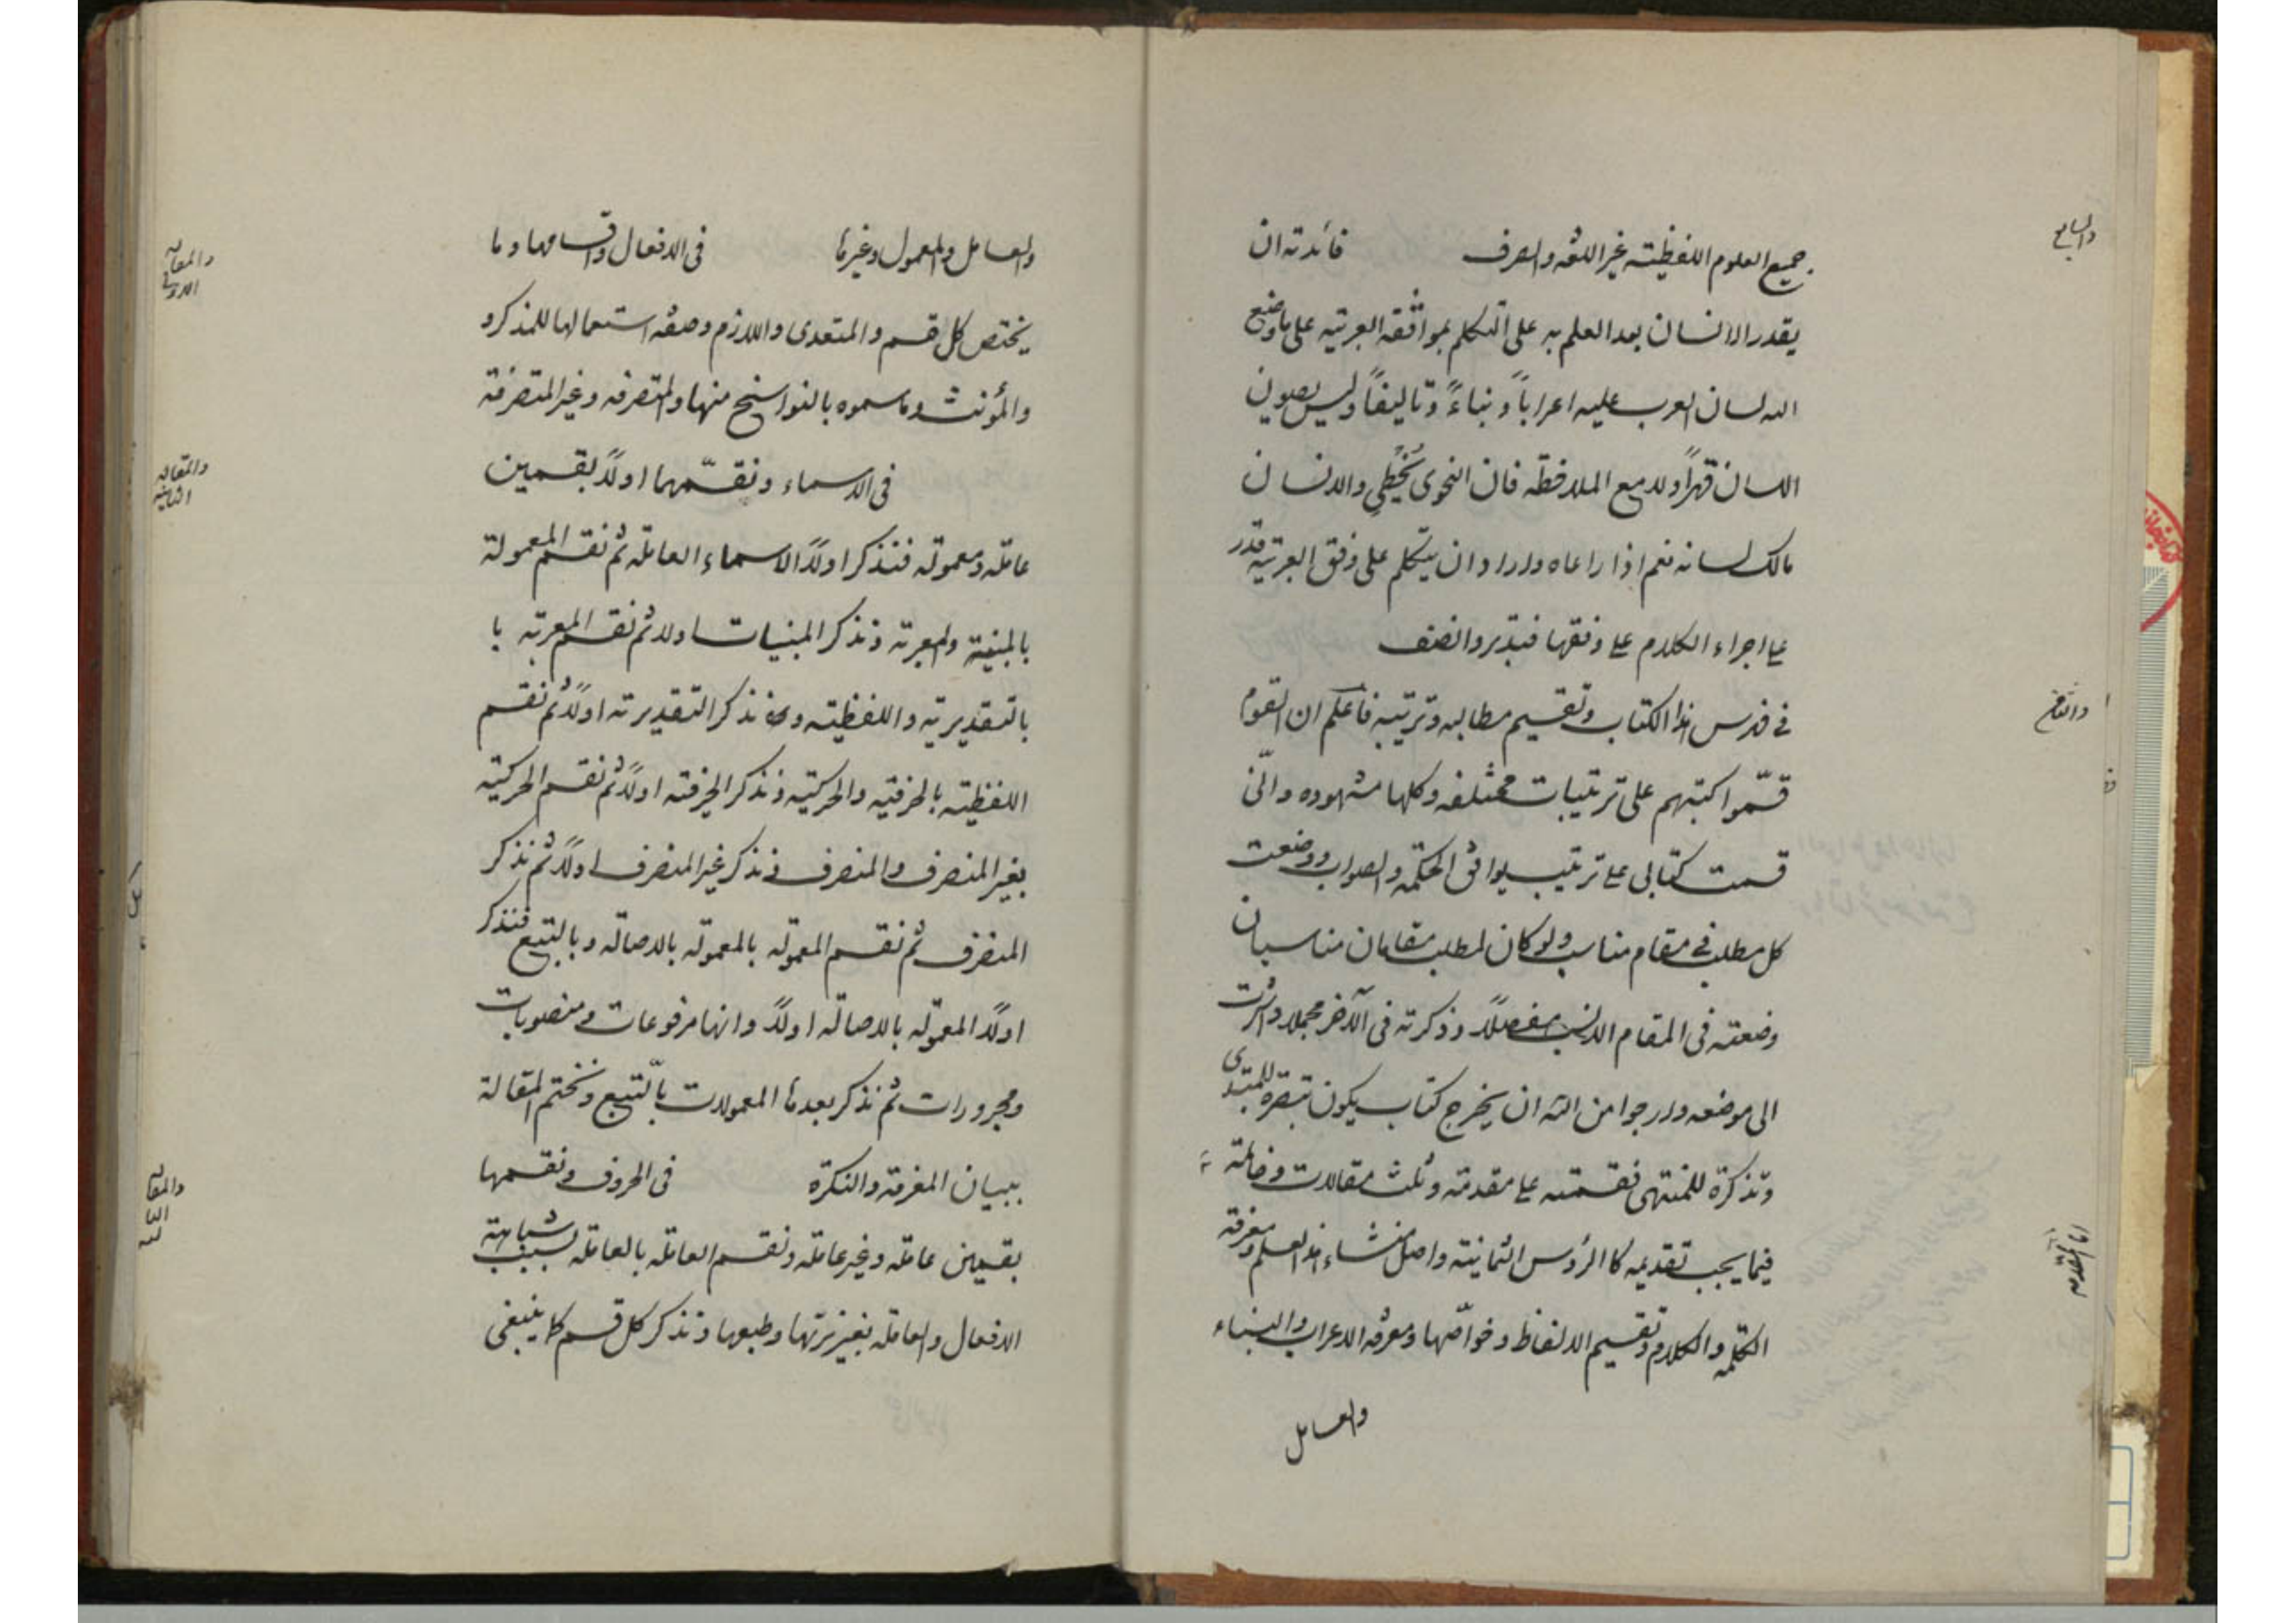 والسابع
جميع العلوم اللفظية غير اللغة والصرف فائدته ان
يقدر الانسان بعد العلم به على التكلم بموافقة العربية على ما وضع
اللسان العرب عليه اعراباً وبناءً وتاليفاً وليس يصون
اللسان قهراً ولا مع الملاحظة فان النحوى يُخطِى والانسان
مالك لسانه نعم اذا راعاه واراد ان يتكلم على وفق العربية قدر
على اجراء الكلام على وفقها فتدبر وانصف
والثامن
فى فهرس هذا الكتاب وتقسيم مطالبه وترتيبه فاعلم ان القوم
قسّموا كتبهم على ترتيبات مختلفه وكلها مشهوده وانّى
قسمت كتابى على ترتيب يوافق الحكمه والصواب ووضعت
كل مطلب فى مقام مناسب ولو كان لمطلب مقامان مناسبان
وضعته فى المقام الانسب مفصلاً وذكرته فى الآخر مجملا واشرت
الى موضعه وارجوا من الله ان يخرج كتاب يكون تبصرة للمبتدى
وتذكرة للمنتهى فقسمته على مقدمة وثلث مقالات وخاتمة
فيما يجب تقديمه كالرؤس الثمانية واصل منشاء هذا العلم ومعرفة
الكلمه والكلام وتقسيم الالفاظ وخواصّها ومعرفه الاعراب والبناء
والعامل
والعامل والمعمول وغيرها فى الافعال واقسامها وما
والمقاله
الاولى
يختص كل قسم والمتعدى واللازم وصفه استعمالها للمذكر و
والمؤنث وما سموه بالنواسخ منها والمتصرفه وغير المتصرفة
والمقاله
الثانيه
فى الاسماء ونقسّمها اولاً بقسمين
عامله ومعموله فنذكر اولاً الاسماء العامله ثم نقسم المعمولة
بالمبنية والمعربه ونذكر المبنيات اولا ثم نقسم المعربه با
بالتقديريه واللفظيه ونذكر التقديريه اولاً ثم نقسم
اللفظيه بالحرفيه والحركتيه ونذكر الحرفيه اولاً ثم نقسم الحركتيه
بغير المنصرف والمنصرف ونذكر غير المنصرف اولاً ثم نذكر
المنصرف ثم نقسم المعموله بالمعموله بالاصاله وبالتبع فنذكر
اولاً المعموله بالاصاله اولاً وانها مرفوعات ومنصوبات
ومجرورات ثم نذكر بعدها المعمولات بالتبع ونختم المقالة
ببيان المعرفه والنكرة فى الحروف ونقسمها
والمقا
الثا
لثه
بقسمين عامله وغير عامله ونقسم العامله بالعامله بسبب شباهة
الافعال والعامله بغيزيتها وطبعها ونذكر كل قسم كما ينبغى